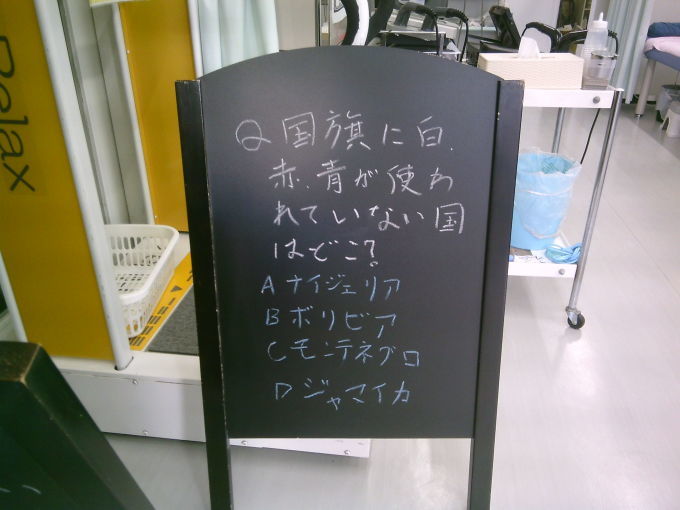 Relax
Q 国旗に白、
赤、青が使わ
れていない国
はどこ?
A ナイジェリア
B ボリビア
C モンテネグロ
D ジャマイカ